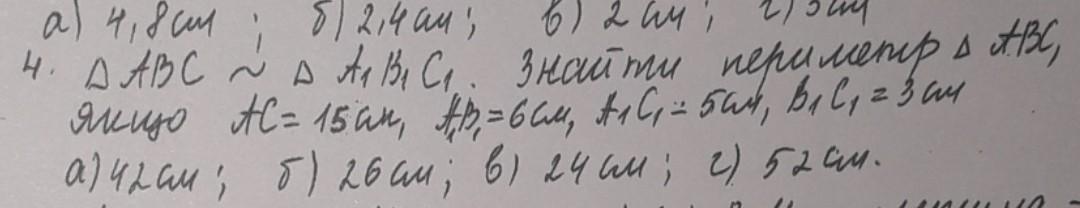 а) 4,8 см; б) 2,4 см; в) 2 см; г) 3 см
4. Δ ABC ~ Δ A₁B₁C₁. Знайти периметр Δ ABC,
якщо AC = 15 см, A₁B₁ = 6 см, A₁C₁ = 5 см, B₁C₁ = 3 см
а) 42 см; б) 26 см; в) 24 см; г) 52 см.